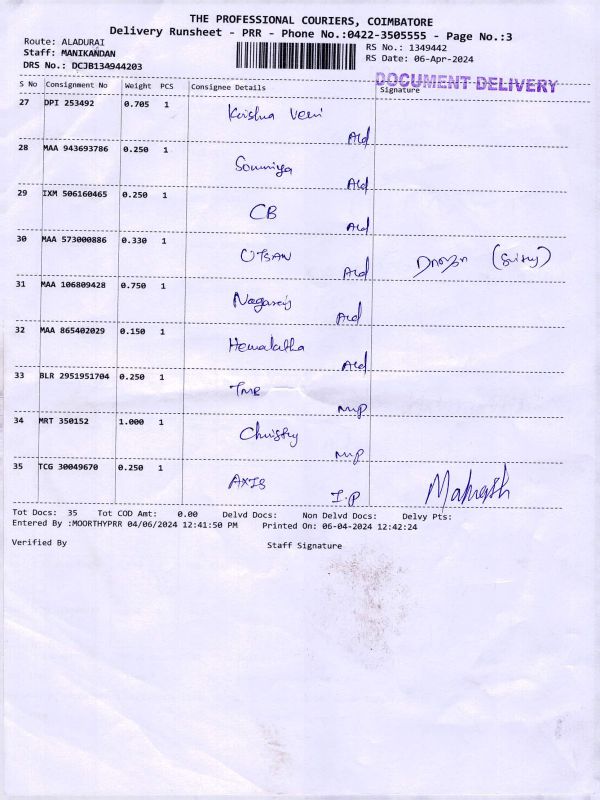 THE PROFESSIONAL COURIERS, COIMBATORE
Delivery Runsheet - PRR - Phone No.:0422-3505555 - Page No.:3
Route: ALADURAI
Staff: MANIKANDAN
DRS No.: DCJB134944203
RS No.: 1349442
RS Date: 06-Apr-2024
DOCUMENT DELIVERY
S No Consignment No Weight PCS Consignee Details Signature
27 DPI 253492 0.705 1 Krishna Veni
Ald
28 MAA 943693786 0.250 1 Sowmiya
Ald
29 IXM 506160465 0.250 1 CB
Ald
30 MAA 573000886 0.330 1
Ald
31 MAA 106809428 0.750 1 Nagaraj
Ald
32 MAA 865402029 0.150 1 Hemalatha
Ald
33 BLR 2951951704 0.250 1 TMR
MP
34 MRT 350152 1.000 1 Christy
MP
35 TCG 30049670 0.250 1 AXIS
I.P
Mahesh
Tot Docs: 35 Tot COD Amt: 0.00 Delvd Docs: Non Delvd Docs: Delvy Pts:
Entered By :MOORTHYPRR 04/06/2024 12:41:50 PM Printed On: 06-04-2024 12:42:24
Verified By Staff Signature